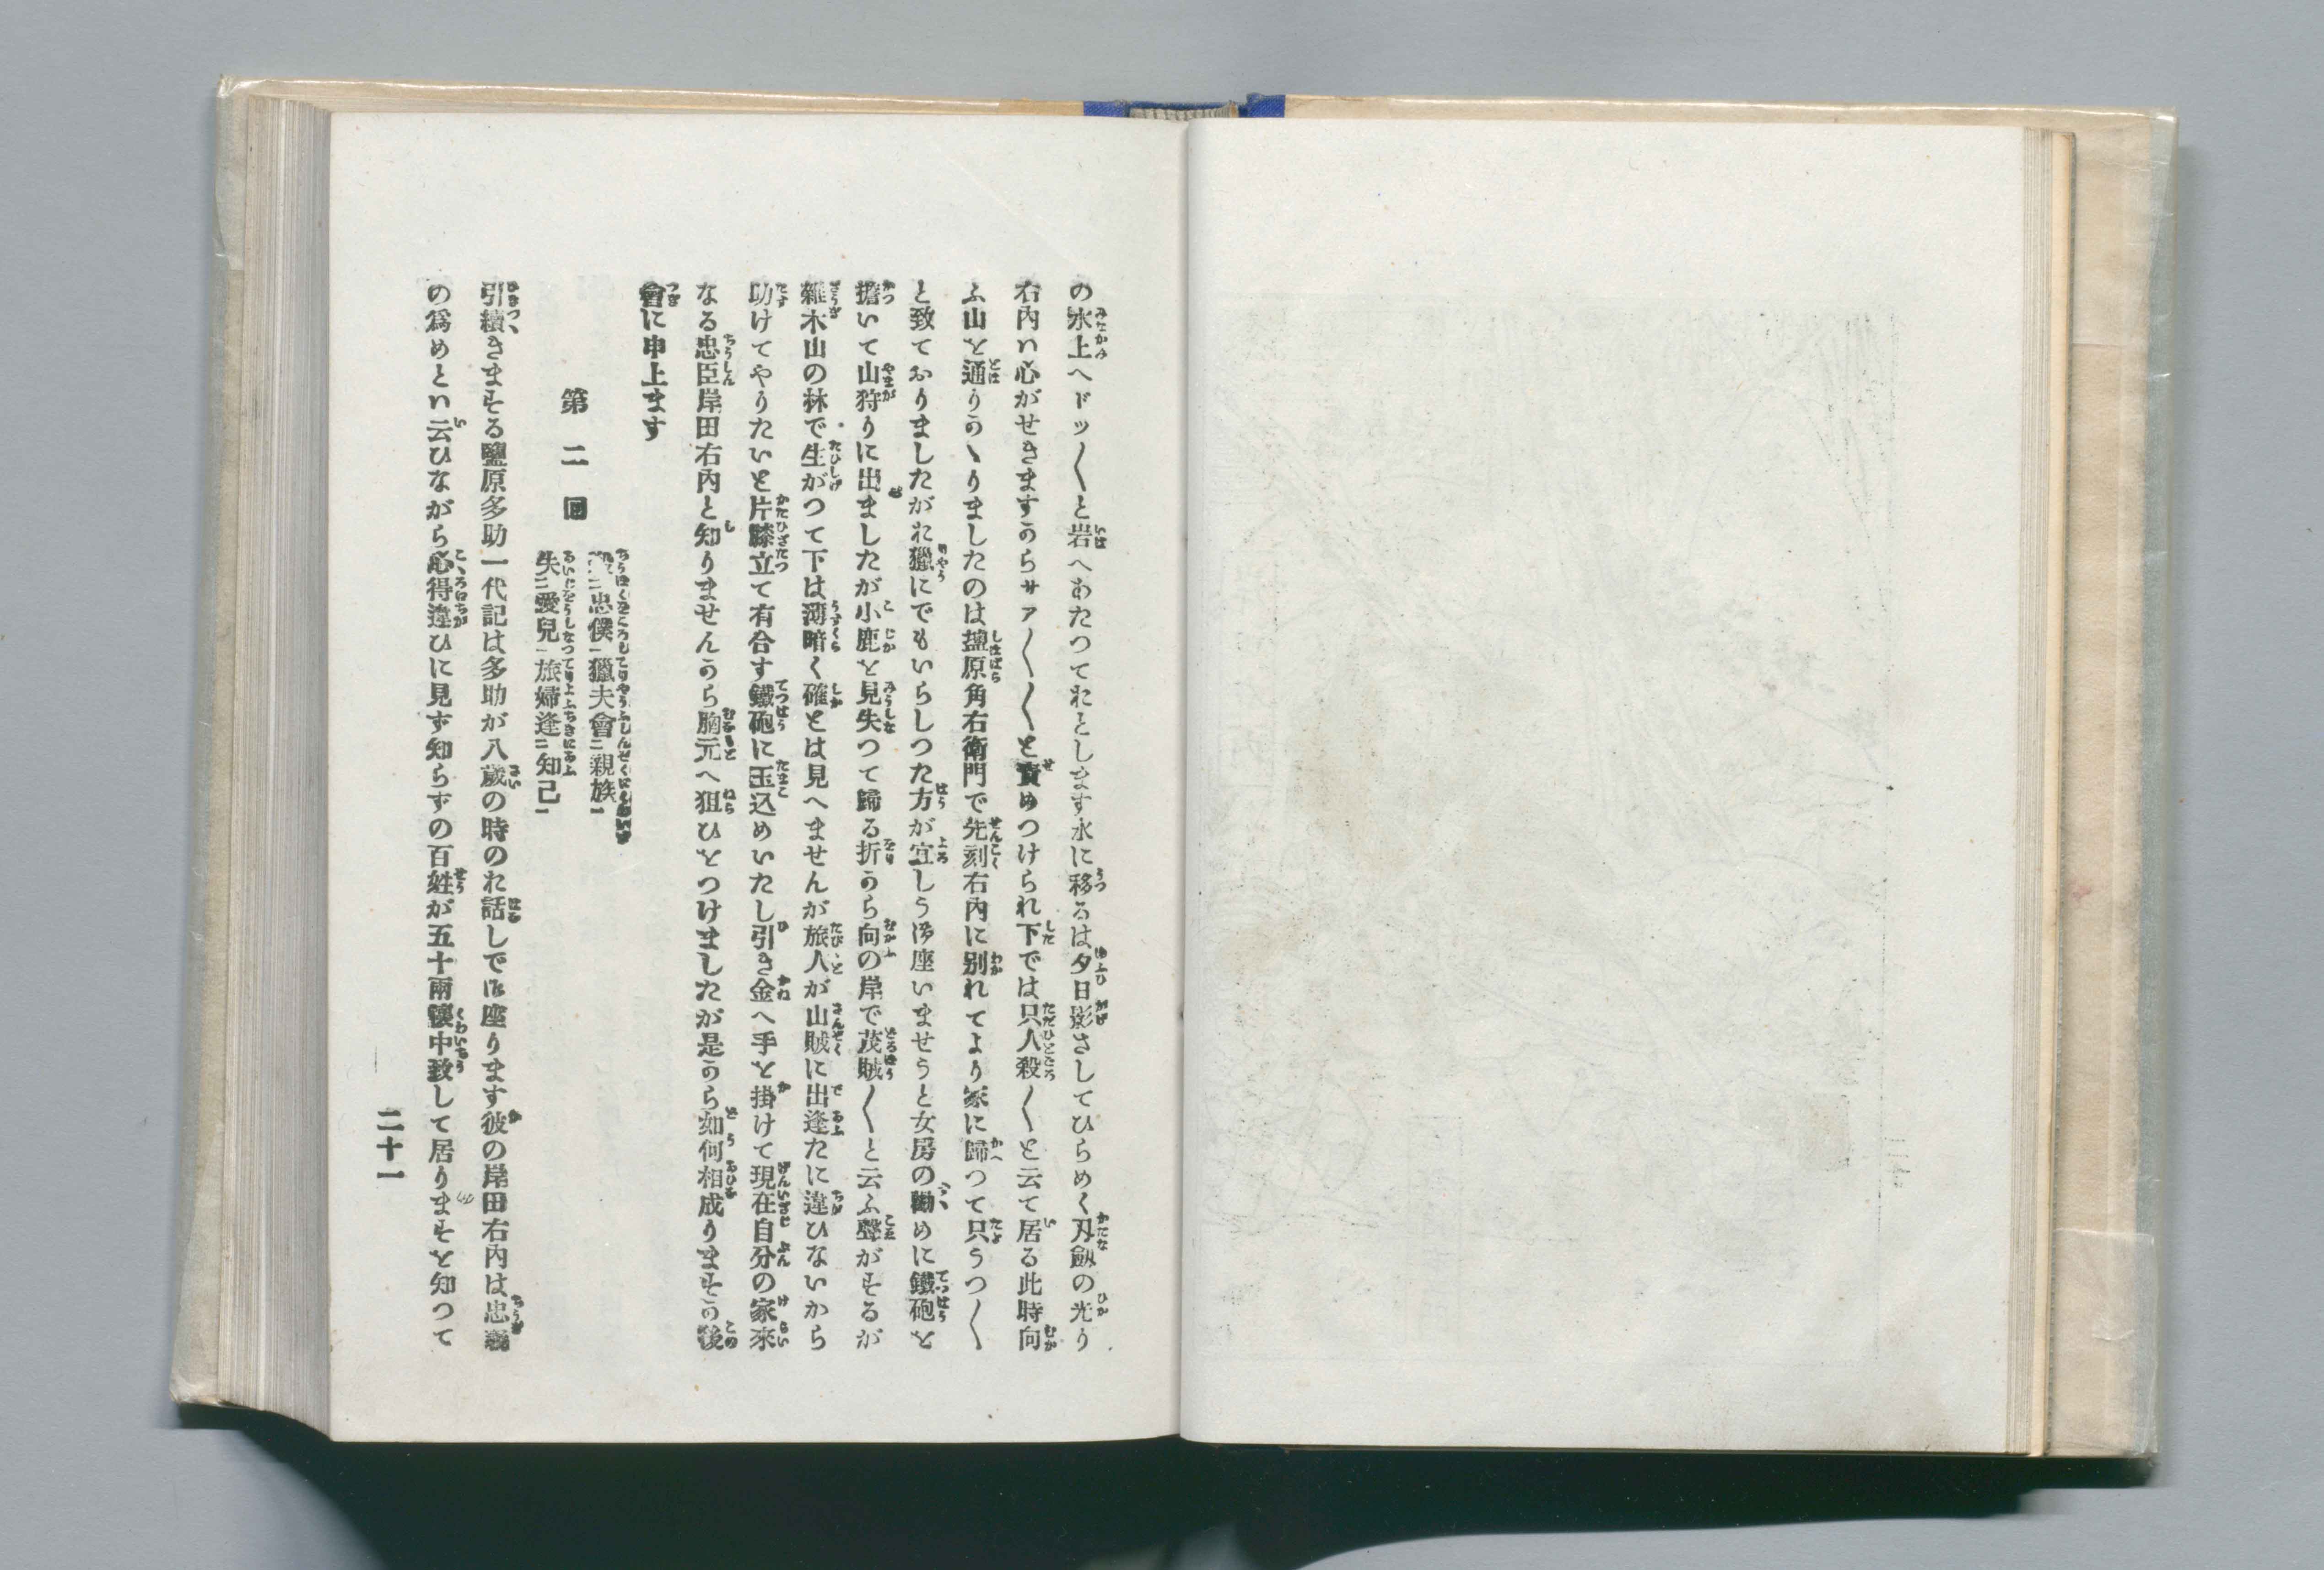 の水上へドッ〱と岩へあたつてれとします水に移るは夕日影さしてひらめく刃劔の光り
右內ハ心がせきますゟらサア〱〱と責めつけられ下では只人殺〱と云て居る此時向
ふ山を通りかゝりましたのは塩原角右衛門で先刻右內に別れてより家に歸つて只うつ〱
と致ておりましたがれ獵にでもいらしつた方が宜しう御座いませうと女房の勸めに鐵砲を
擔いて山狩りに出ましたが小鹿を見失つて歸る折から向の岸で茂賊〱と云ふ聲がするが
雜木山の林で生がつて下は薄暗く確とは見へませんが旅人が山賊に出逢たに違ひないから
助けてやりたいと片膝立て有合す鐵砲に玉込めいたし引き金へ手を掛けて現在自分の家來
なる忠臣岸田右內と知りませんから胸元へ狙ひをつけましたが是から如何相成りますか後
會に申上ます
第二回
忠僕獵夫會親族
失愛兒旅婦逢知己
引續きまする鹽原多助一代記は多助が八歲の時のれ話しで御座ります彼の岸田右內は忠義
の爲めとハ云ひながら心得違ひに見ず知らずの百姓が五十兩懷中致して居りますを知つて
二十一